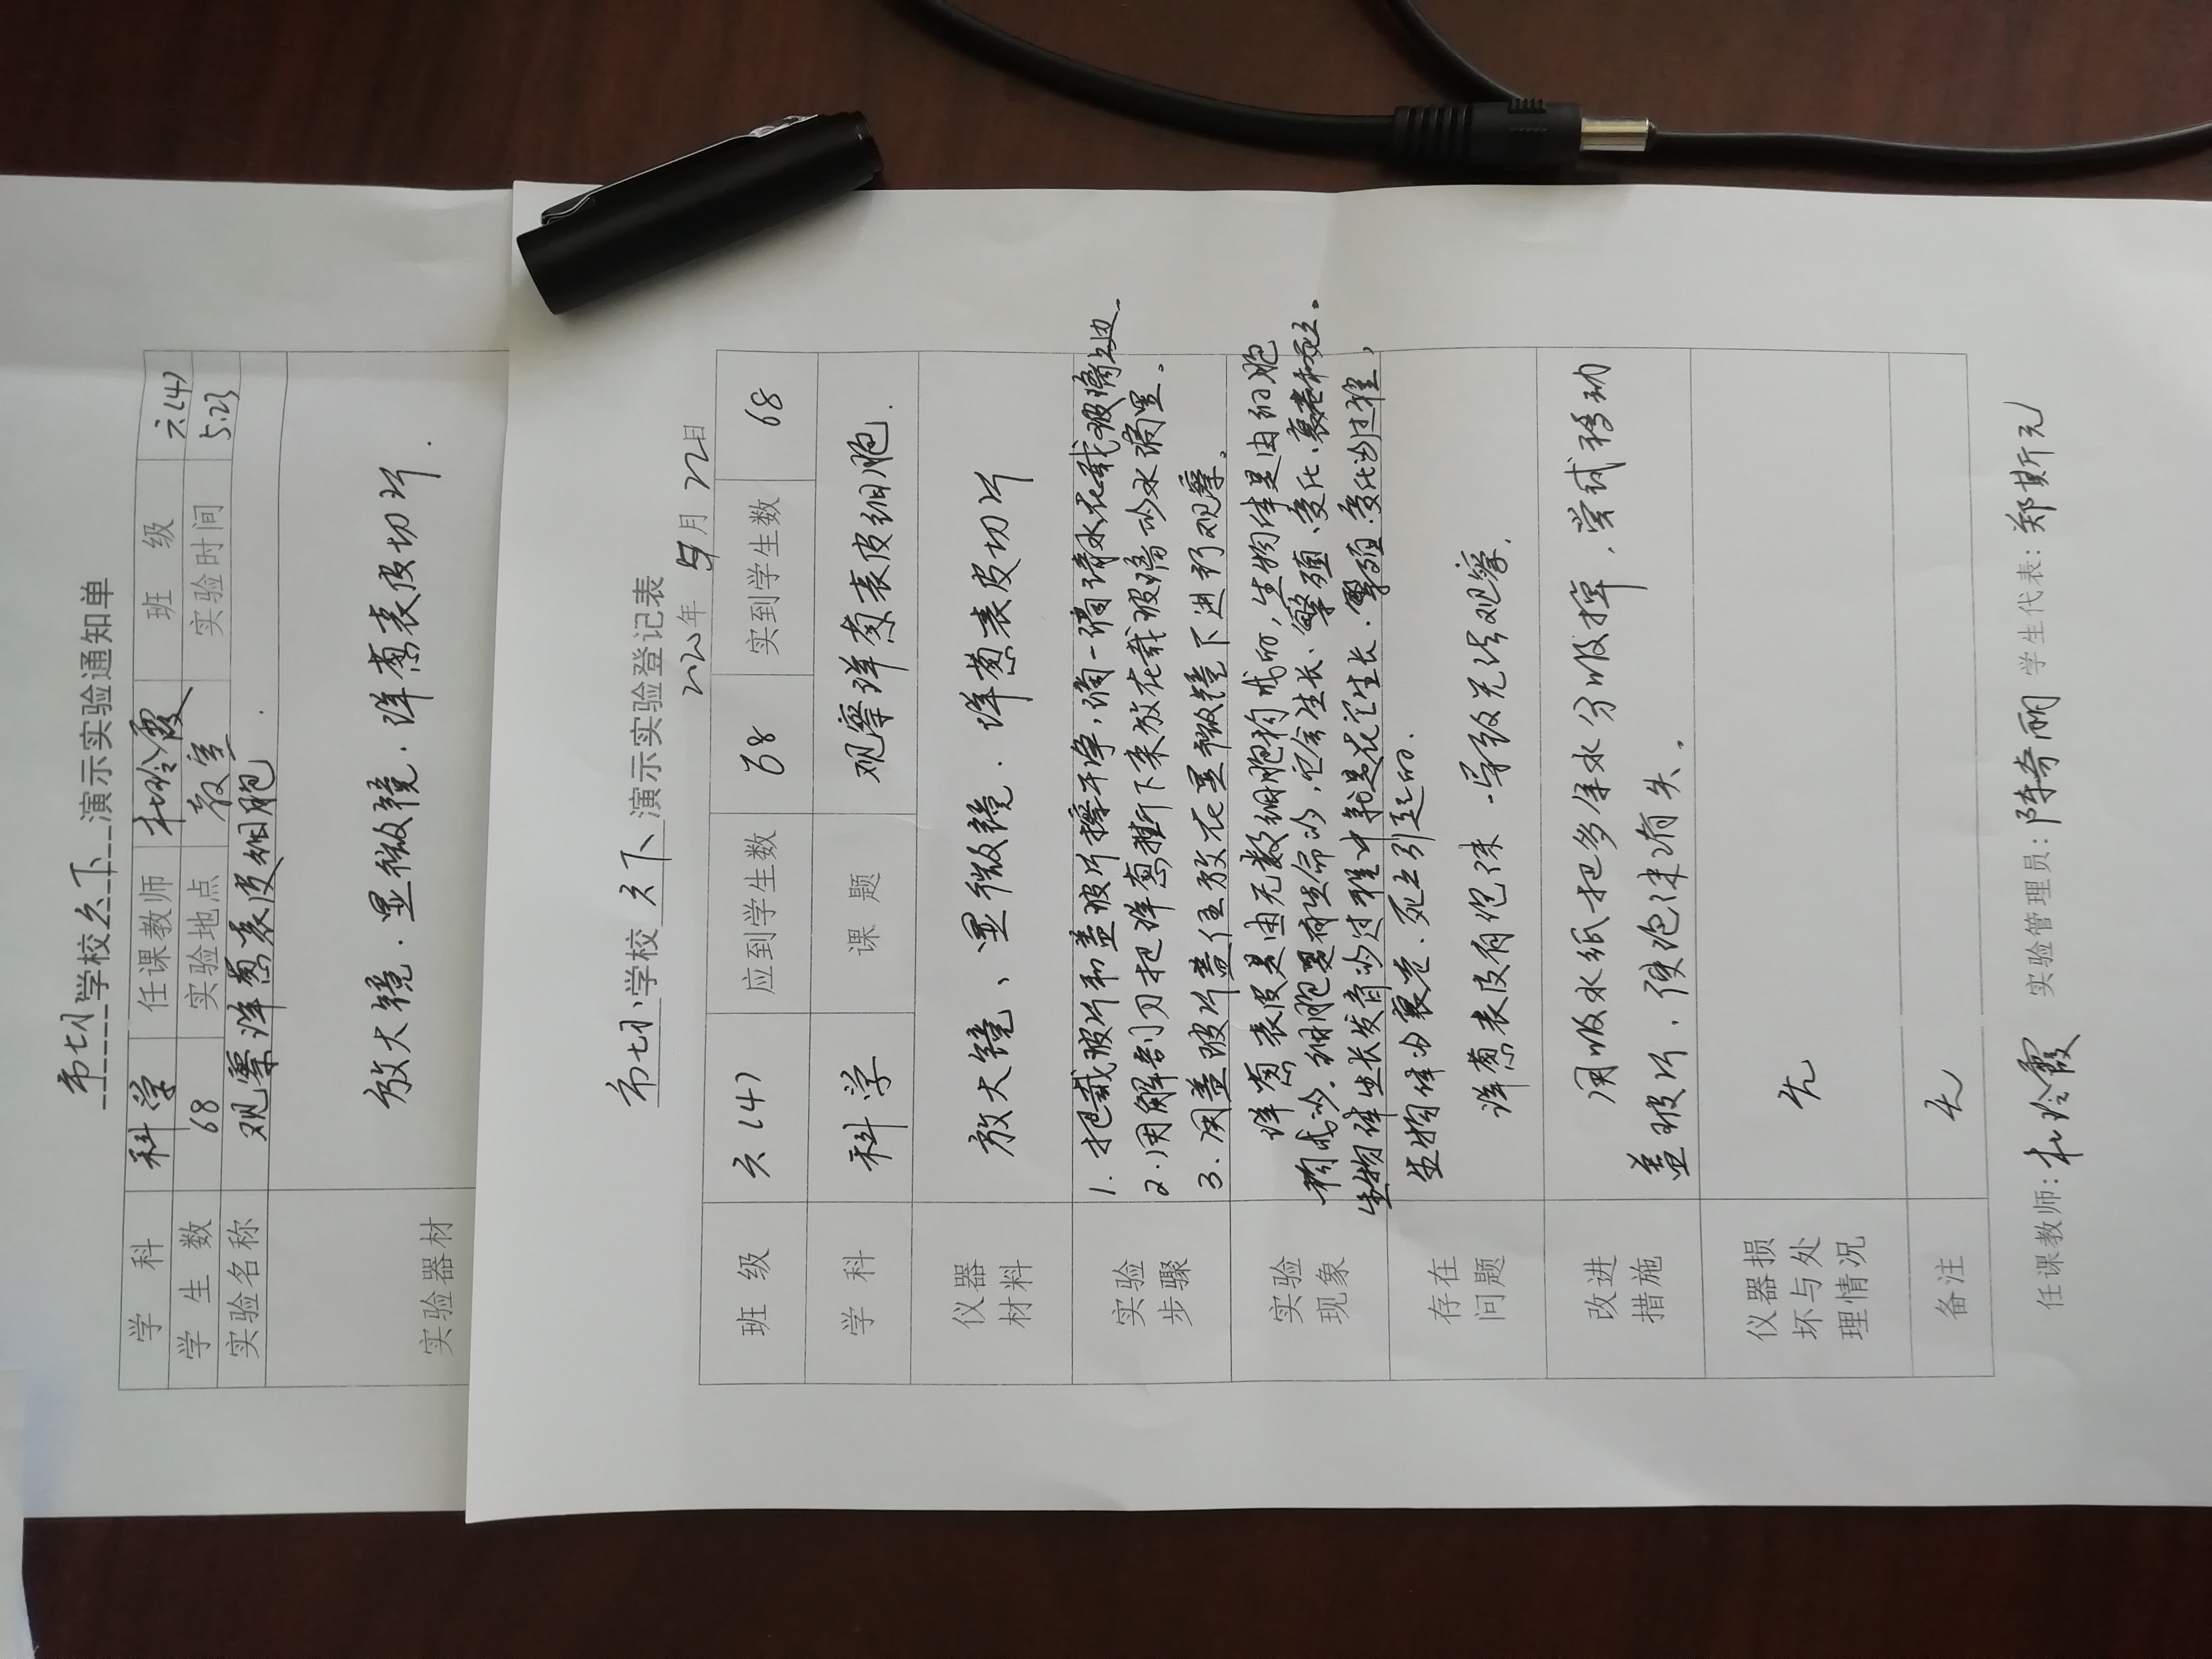 市七小学校六下演示实验通知单
学 科 科学 任课教师 杜玲霞 班 级 六(4)
学 生 数 68 实验地点 教室 实验时间 5.23
实验名称 观察洋葱表皮细胞.
实验器材 放大镜.显微镜.洋葱表皮切片.
市七小学校 六下 演示实验登记表
年 5月 22日
班 级 六(4) 应到学生数 68 实到学生数 68
学 科 科学 课 题 观察洋葱表皮细胞.
仪器材料 放大镜、显微镜.洋葱表皮切片
实验步骤
1.把载玻片和盖玻片擦干净,滴一滴清水在载玻璃边
2.用解剖刀把洋葱撕下来放在载玻璃的水滴里。
3.用盖玻片盖住放在显微镜下进行观察。
实验现象
洋葱表皮是由无数细胞构成的,生物体是由细胞
构成的.细胞是有生命的,它会生长、繁殖、变化、衰老和死亡。
生物体生长发育的过程中就是在它生长.繁殖.变化的过程,
生物体的衰老.死亡引起的.
存在问题 洋葱表皮有泡沫.导致无法观察.
改进措施
用吸水纸把多余水分吸掉,尝试移动
盖玻片,使泡沫消失.
仪器损坏与处理情况 无
备注 无
任课教师:杜玲霞 实验管理员:陈奇丽 学生代表:郑斯元